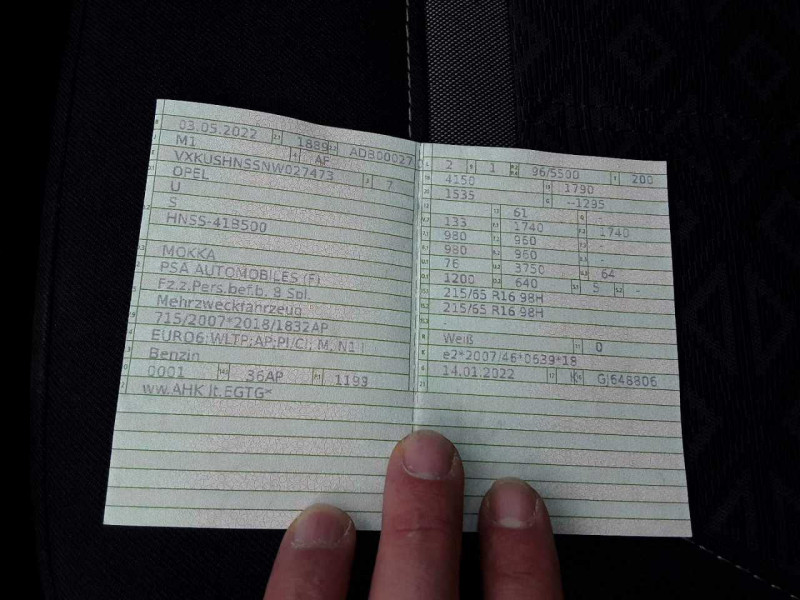 03.05.2022 1889 ADB00027
M1 AF
VXKUSHNSSNW027473 7
OPEL
U
S
HNSS-41B500
MOKKA
PSA AUTOMOBILES (F)
Fz.z.Pers.bef.b. 8 Spl.
Mehrzweckfahrzeug
715/2007*2018/1832AP
EURO6;WLTP;AP;PI/CI; M, N1 I
Benzin
0001 36AP 1199
ww.AHK lt.EGTG*
2 1 96/5500 200
4150 1790
1535 --1295
61 -
133 1740 1740
980 960 -
980 960 -
76 3750 64
1200 640 5 -
215/65 R16 98H
215/65 R16 98H
-
Weiß 0
e2*2007/46*0639*18
14.01.2022 K G|648806